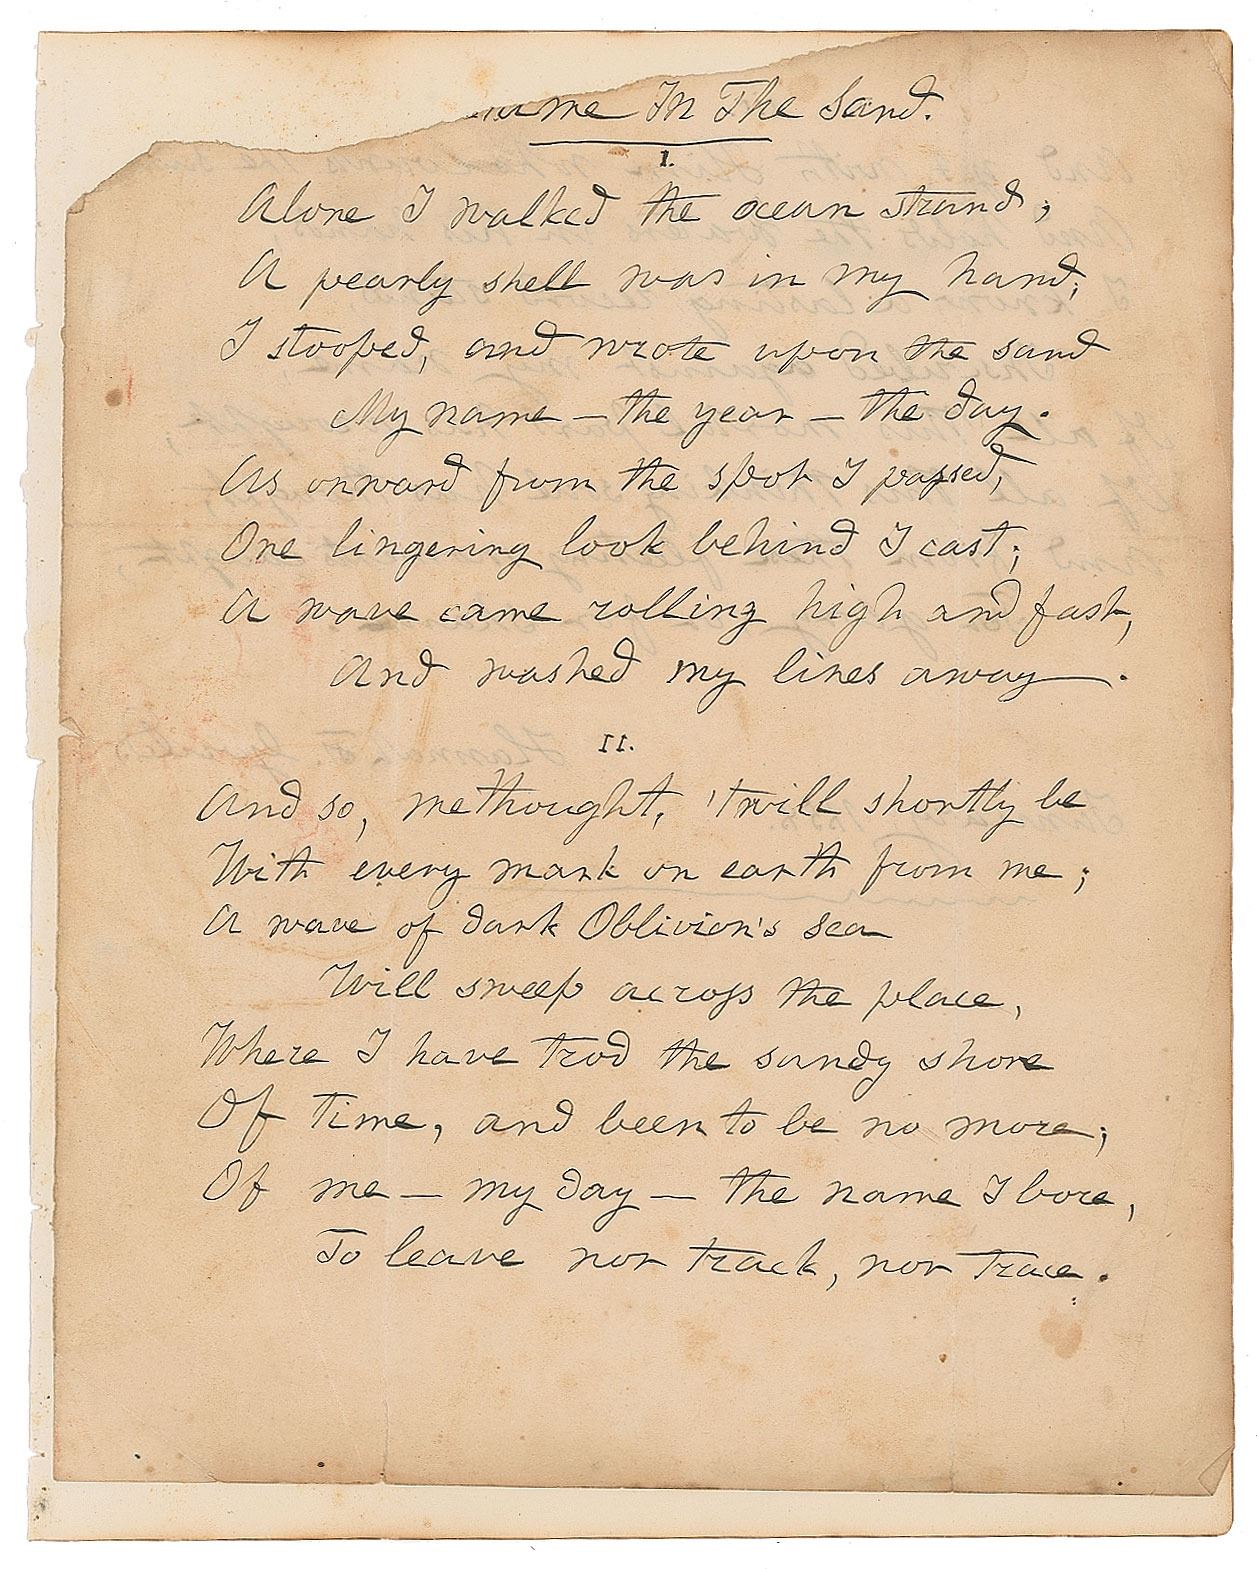 ame In The Sand.
I.
Alone I walked the ocean strand;
A pearly shell was in my hand;
I stooped, and wrote upon the sand
My name — the year — the day.
As onward from the spot I passed,
One lingering look behind I cast;
A wave came rolling high and fast,
And washed my lines away.
II.
And so, methought, 'twill shortly be
With every mark on earth from me;
A wave of dark Oblivion's sea
Will sweep across the place,
Where I have trod the sandy shore
Of Time, and been to be no more;
Of me — my day — the name I bore,
To leave nor track, nor trace.